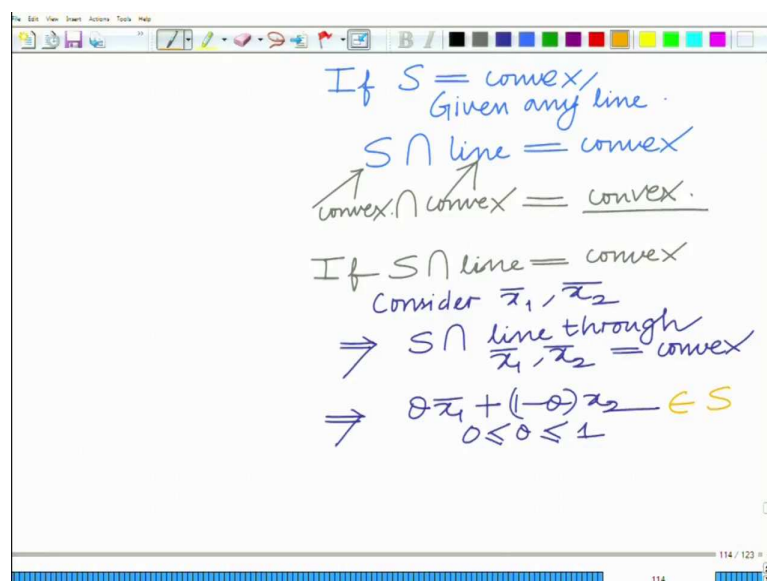 File Edit View Insert Actions Tools Help
B I
If S = convex,
Given any line.
S ∩ line = convex
convex. ∩ convex = convex.
If S ∩ line = convex
Consider x̄₁, x̄₂
⇒ S ∩ line through
x̄₁, x̄₂ = convex
⇒ θx̄₁ + (1-θ)x₂ ∈ S
0 ≤ θ ≤ 1
114 / 123
114